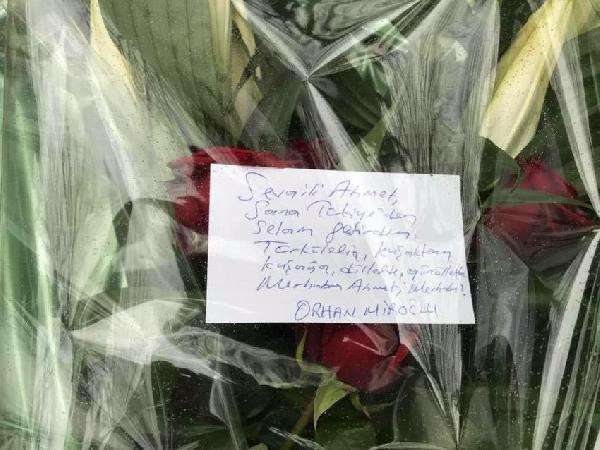 Sevgili Ahmet,
Sana Türkiye'den
Selam getirdim.
Türkülerin, kuşaktan
kuşağa, dillerde, gönüllerde
Merhaba Ahmet, Merhaba!
ORHAN MİROĞLU